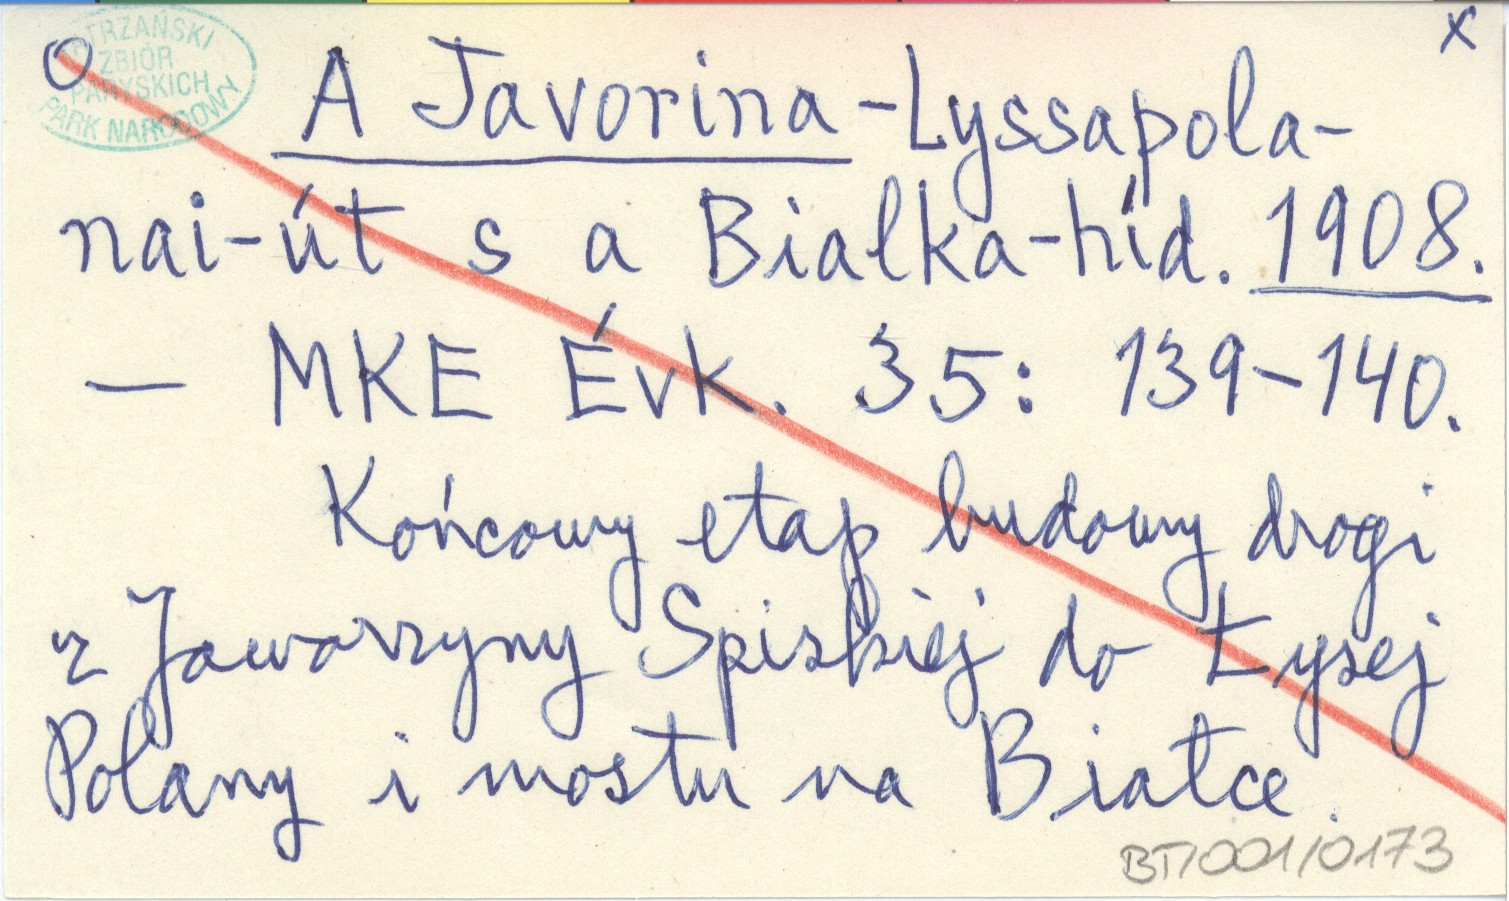 O
x
TRZAŃSKI
ZBIÓR
PARYSKICH
PARK NARODOWY
A Javorina-Lyssapola-
nai-út s a Bialka-híd. 1908.
— MKE Évk. 35: 139-140.
Końcowy etap budowy drogi
z Jaworzyny Spiskiej do Łysej
Polany i mostu na Białce.
BT/001/0173